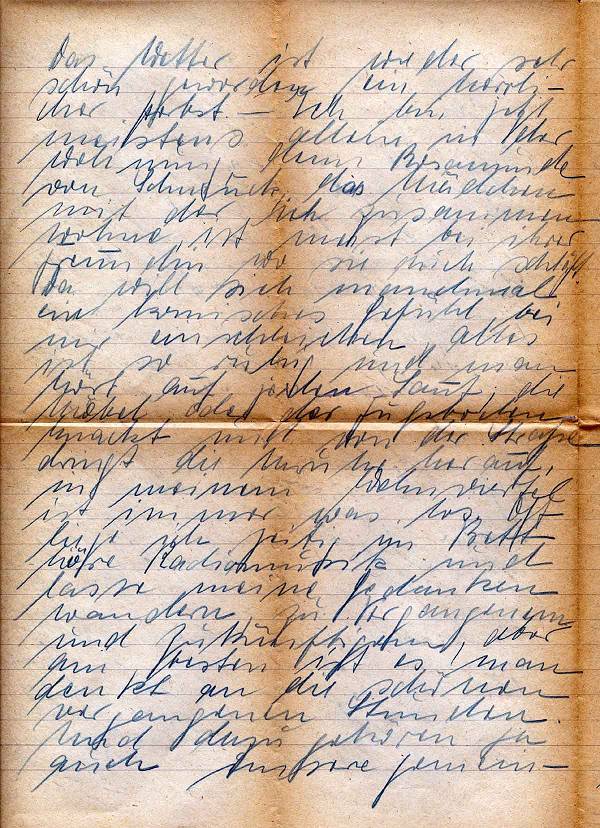 Das Wetter ist wieder sehr
schön geworden, ein herrli-
cher Herbst. — Ich bin jetzt
meistens allein in der
Wohnung, denn Rosamunde
von Schmuck, das Mädchen
mit der ich zusammen
wohne, ist meist bei ihrer
Freundin wo sie auch schläft.
Da will sich manchmal
ein komisches Gefühl bei
mir einschleichen, alles
ist so ruhig und man
hört auf jeden Laut, die
Möbel oder der Fußboden
knackt und von der Straße
dringt die Unruhe herauf,
in meinem Wohnviertel
ist immer was los. Oft
liege ich zeitig im Bett
höre Radiomusik und
lasse meine Gedanken
wandern, zu Vergangenem
und Zukünftigem, aber
am besten ist es, man
denkt an die schönen
vergangenen Stunden.
Und dazu gehören ja
auch unsere gemein-